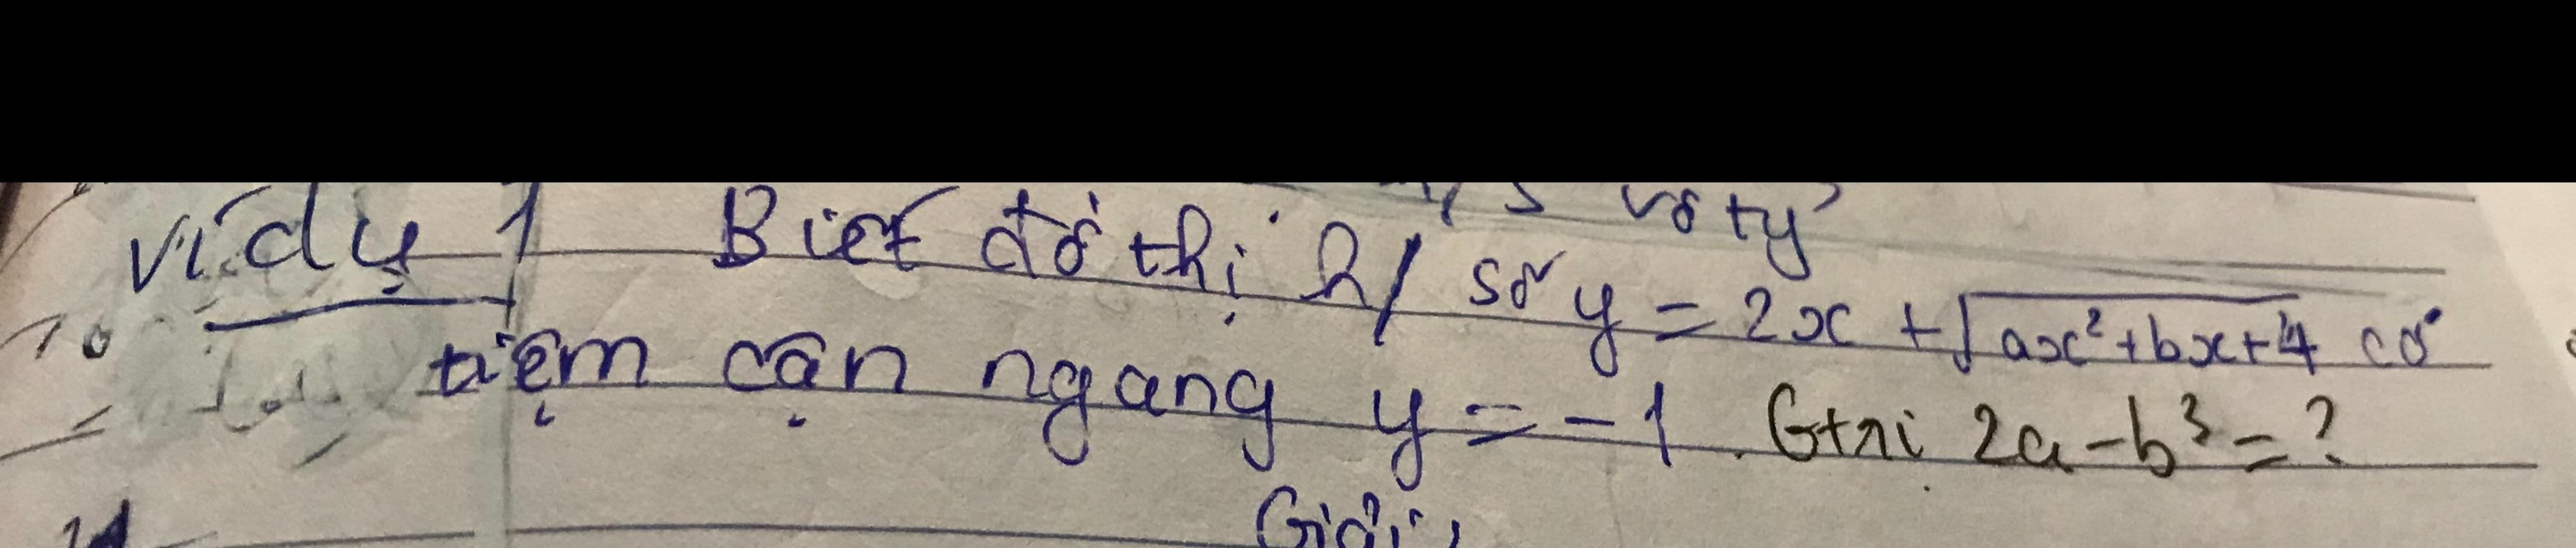 vô tỷ
Ví dụ 1 Biết đồ thị h/số y = 2x + √(ax²+bx+4) có
tiệm cận ngang y = -1. Gtri 2a - b³ = ?
Giải: